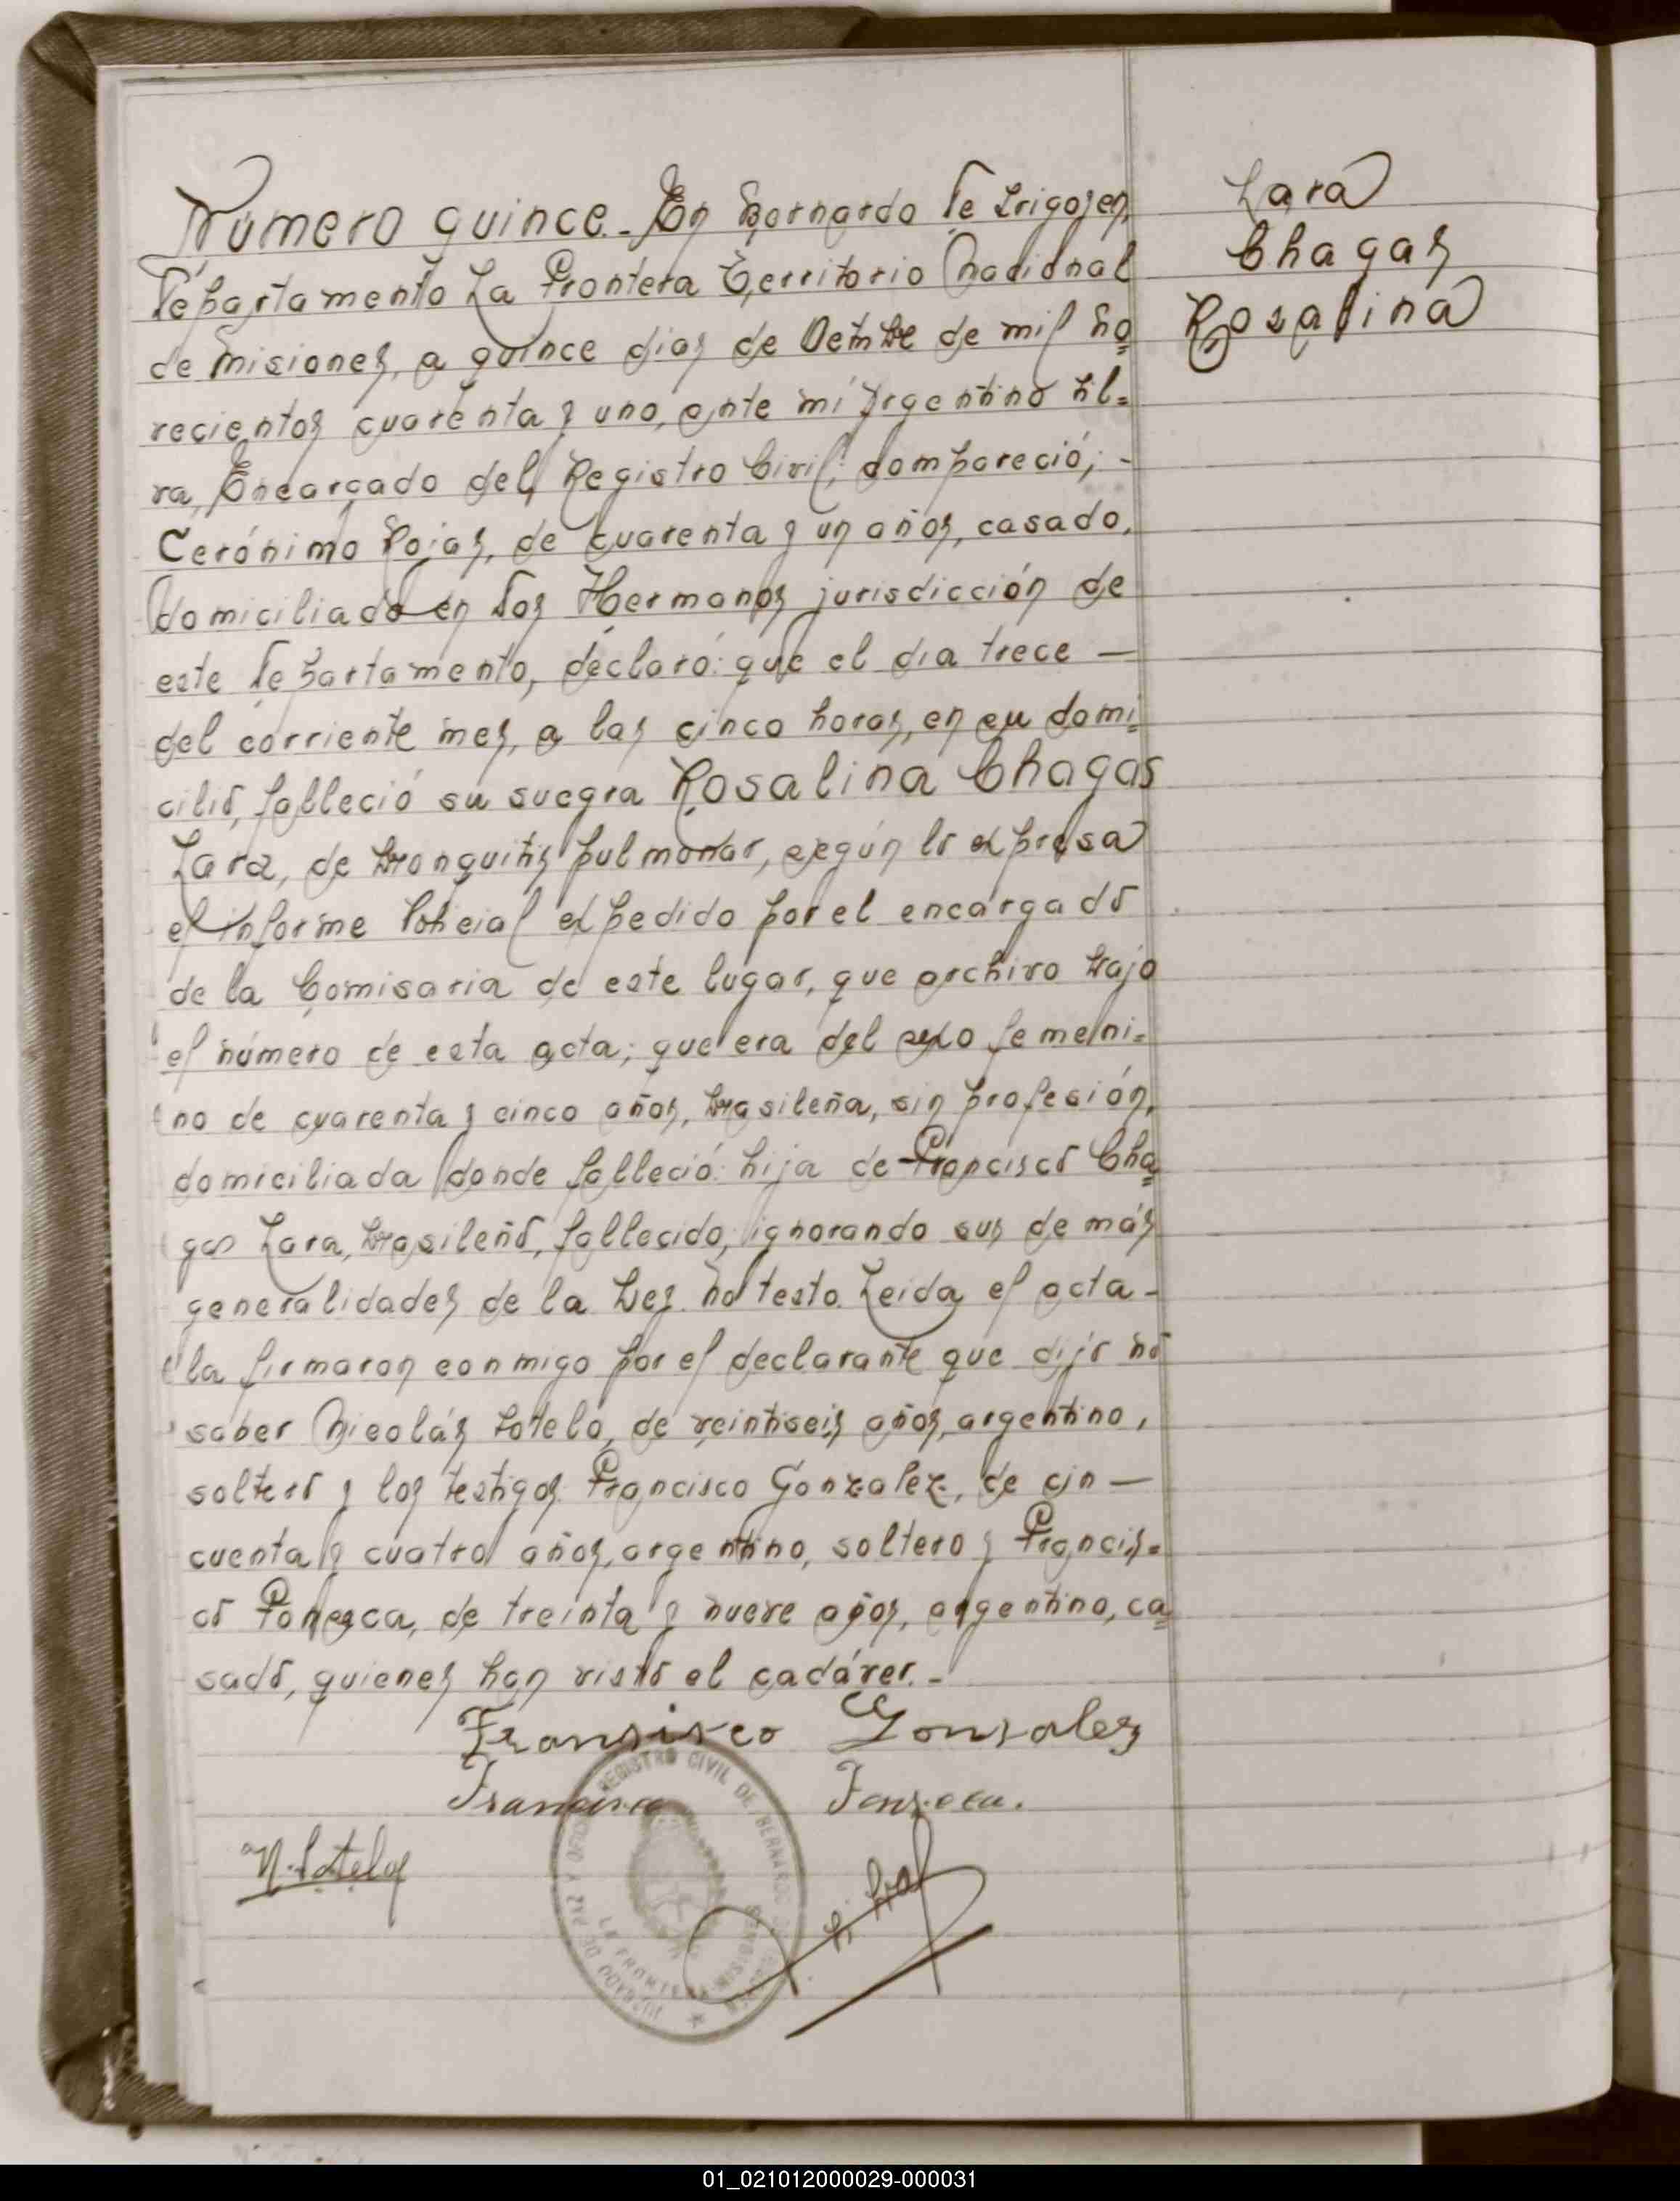 Número quince.- En Bernardo de Irigoyen,
Departamento La Frontera Territorio Nacional
de Misiones, a quince dias de Octubre de mil no=
vecientos cuarenta y uno, ante mí Argentino
ra, Encargado del Registro Civil; compareció; -
Gerónimo Rojas, de cuarenta y un años, casado,
domiciliado en Dos Hermanos jurisdicción de
este Departamento, declaró: que el dia trece —
del corriente mes, a las cinco horas, en su domi=
cilio, falleció su suegra Rosalina Chagas
Lara, de bronquitis pulmonar, según lo expresa
el informe Policial expedido por el encargado
de la Comisaria de este lugar, que archivo bajo
el número de esta acta; que era del sexo femeni=
no de cuarenta y cinco años, brasileña, sin profesión,
domiciliada donde falleció: hija de Francisco Cha=
gas Lara, brasileño, fallecido, ignorando sus demás
generalidades de la Ley. No testo. Leida el acta -
la firmaron conmigo por el declarante que dijo no
saber Nicolás Sotelo, de veintiseis años, argentino,
soltero y los testigos Francisco Gonzalez, de cin —
cuenta y cuatro años, argentino, soltero y Francis=
co Fonseca, de treinta y nueve años, argentino, ca=
sado, quienes han visto el cadáver.-
Lara
Chagas
Rosalina
Fransisco Gonsales
Francisco Fonseca.
N. Sotelo
JUZGADO DE PAZ Y OFICINA REGISTRO CIVIL DE BERNARDO DE IRIGOYEN
LA FRONTERA MISIONES
01_021012000029-000031